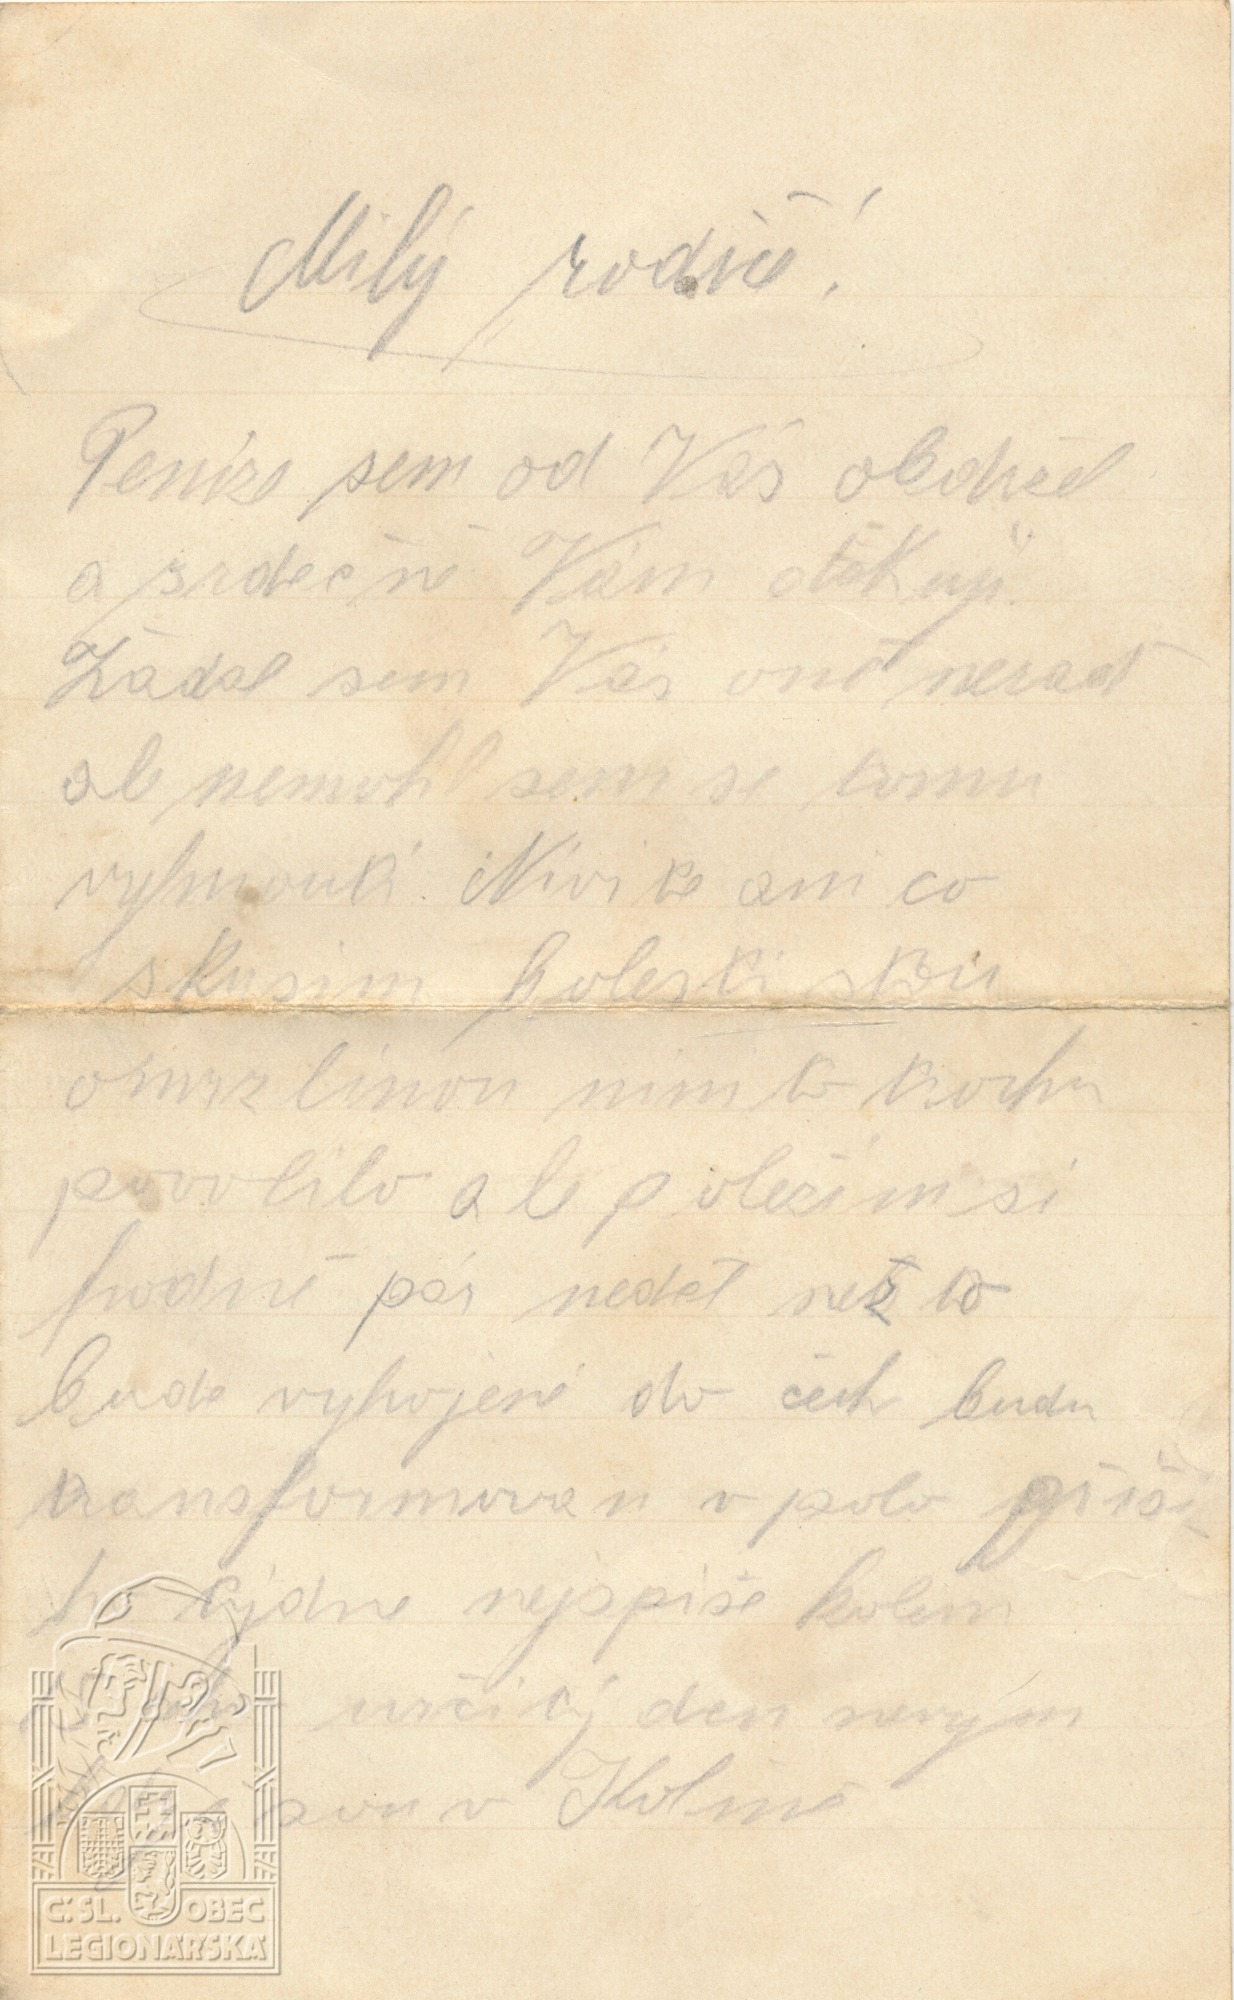 Milý rodiče!
Peníze sem od Vás obdržel
a srdečně Vám děkuji.
Žádal sem Vás vnich nerad
ale nemohl sem se tomu
vyhnouti. Níví že ani co
skusim bolesti stou
omrzlinou nimi to trochu
povolilo ale poležím si
hodně pár neděl než to
bude vyhojené do čech budu
transformovan v polo příští
ho týdne nejspíše kolem
určitý den nevým
sou v Kolíně
Č. SL. OBEC
LEGIONÁŘSKÁ